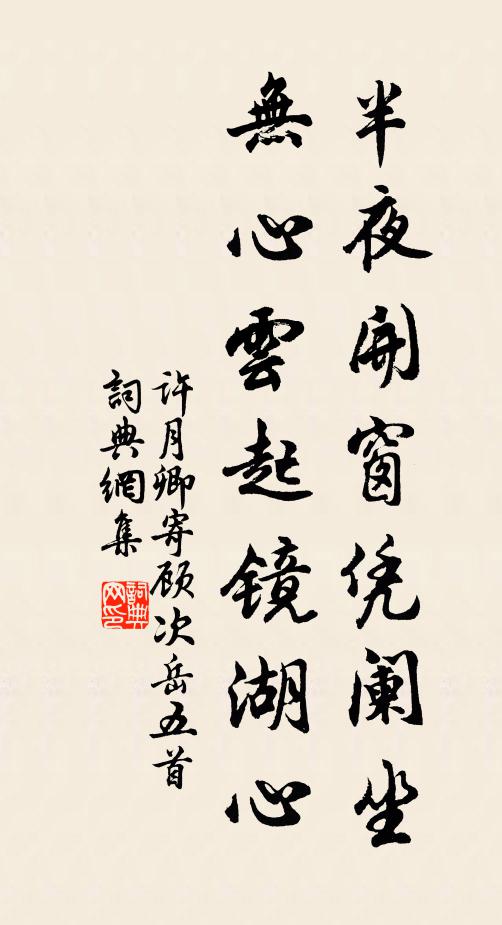 半夜開窗凭阑坐
無心雲起镜湖心
许月卿寄顾次岳五首
詞典網集
詞典网印